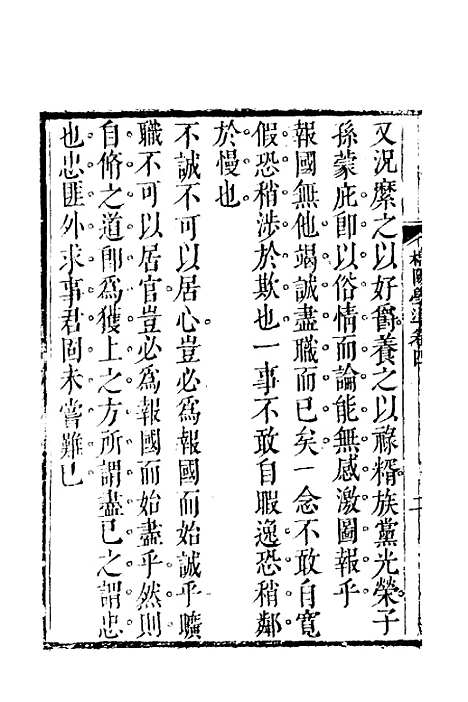 又況縻之以好爵養之以祿糈族黨光榮子
孫蒙庇卽以俗情而論能無感激圖報乎
報國無他竭誠盡職而已矣一念不敢自寬
假恐稍涉於欺也一事不敢自暇逸恐稍鄰
於慢也
不誠不可以居心豈必爲報國而始誠乎曠
職不可以居官豈必爲報國而始盡乎然則
自脩之道卽爲獲上之方所謂盡己之謂忠
也忠匪外求事君固未嘗難已